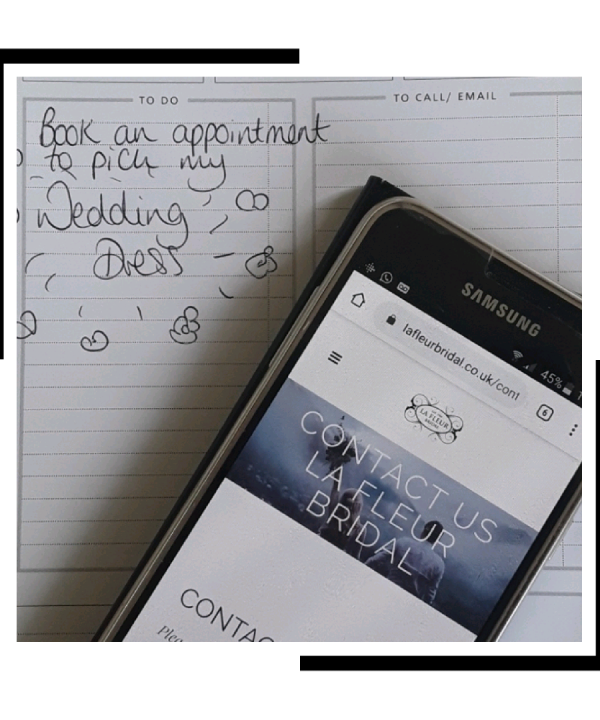 TO DO
Book an appointment
to pick my
Wedding
Dress
TO CALL/ EMAIL
SAMSUNG
45%
lafleurbridal.co.uk/cont
6
LA FLEUR
CONTACT US
LA FLEUR
BRIDAL